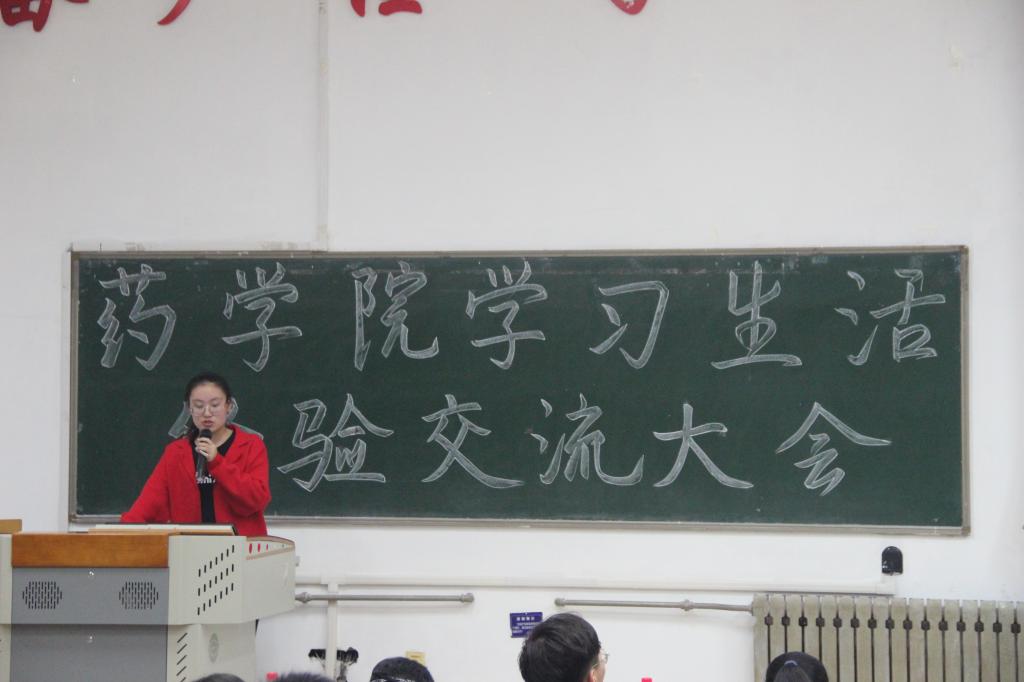 药学院学习生活
验交流大会